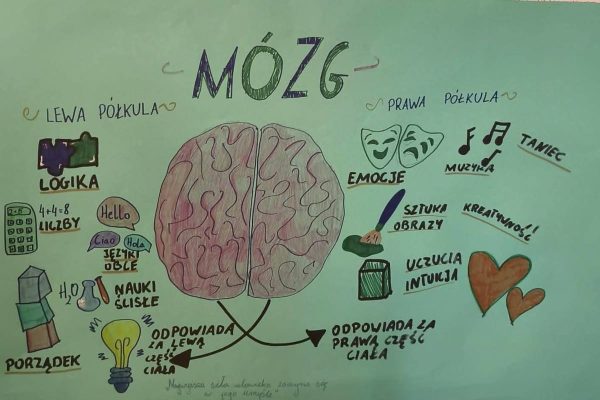 MÓZG
LEWA PÓŁKULA
PRAWA PÓŁKULA
LOGIKA
4+4=8
LICZBY
Hello
Ciao
Hola
JĘZYKI
OBCE
H₂O
NAUKI
ŚCISŁE
PORZĄDEK
ODPOWIADA
ZA LEWĄ
CZĘŚĆ
CIAŁA
EMOCJE
MUZYKA
TANIEC
SZTUKA
OBRAZY
KREATYWNOŚĆ!
UCZUCIA
INTUICJA
ODPOWIADA ZA
PRAWĄ CZĘŚĆ
CIAŁA
siła człowieka się
w jego umyśle